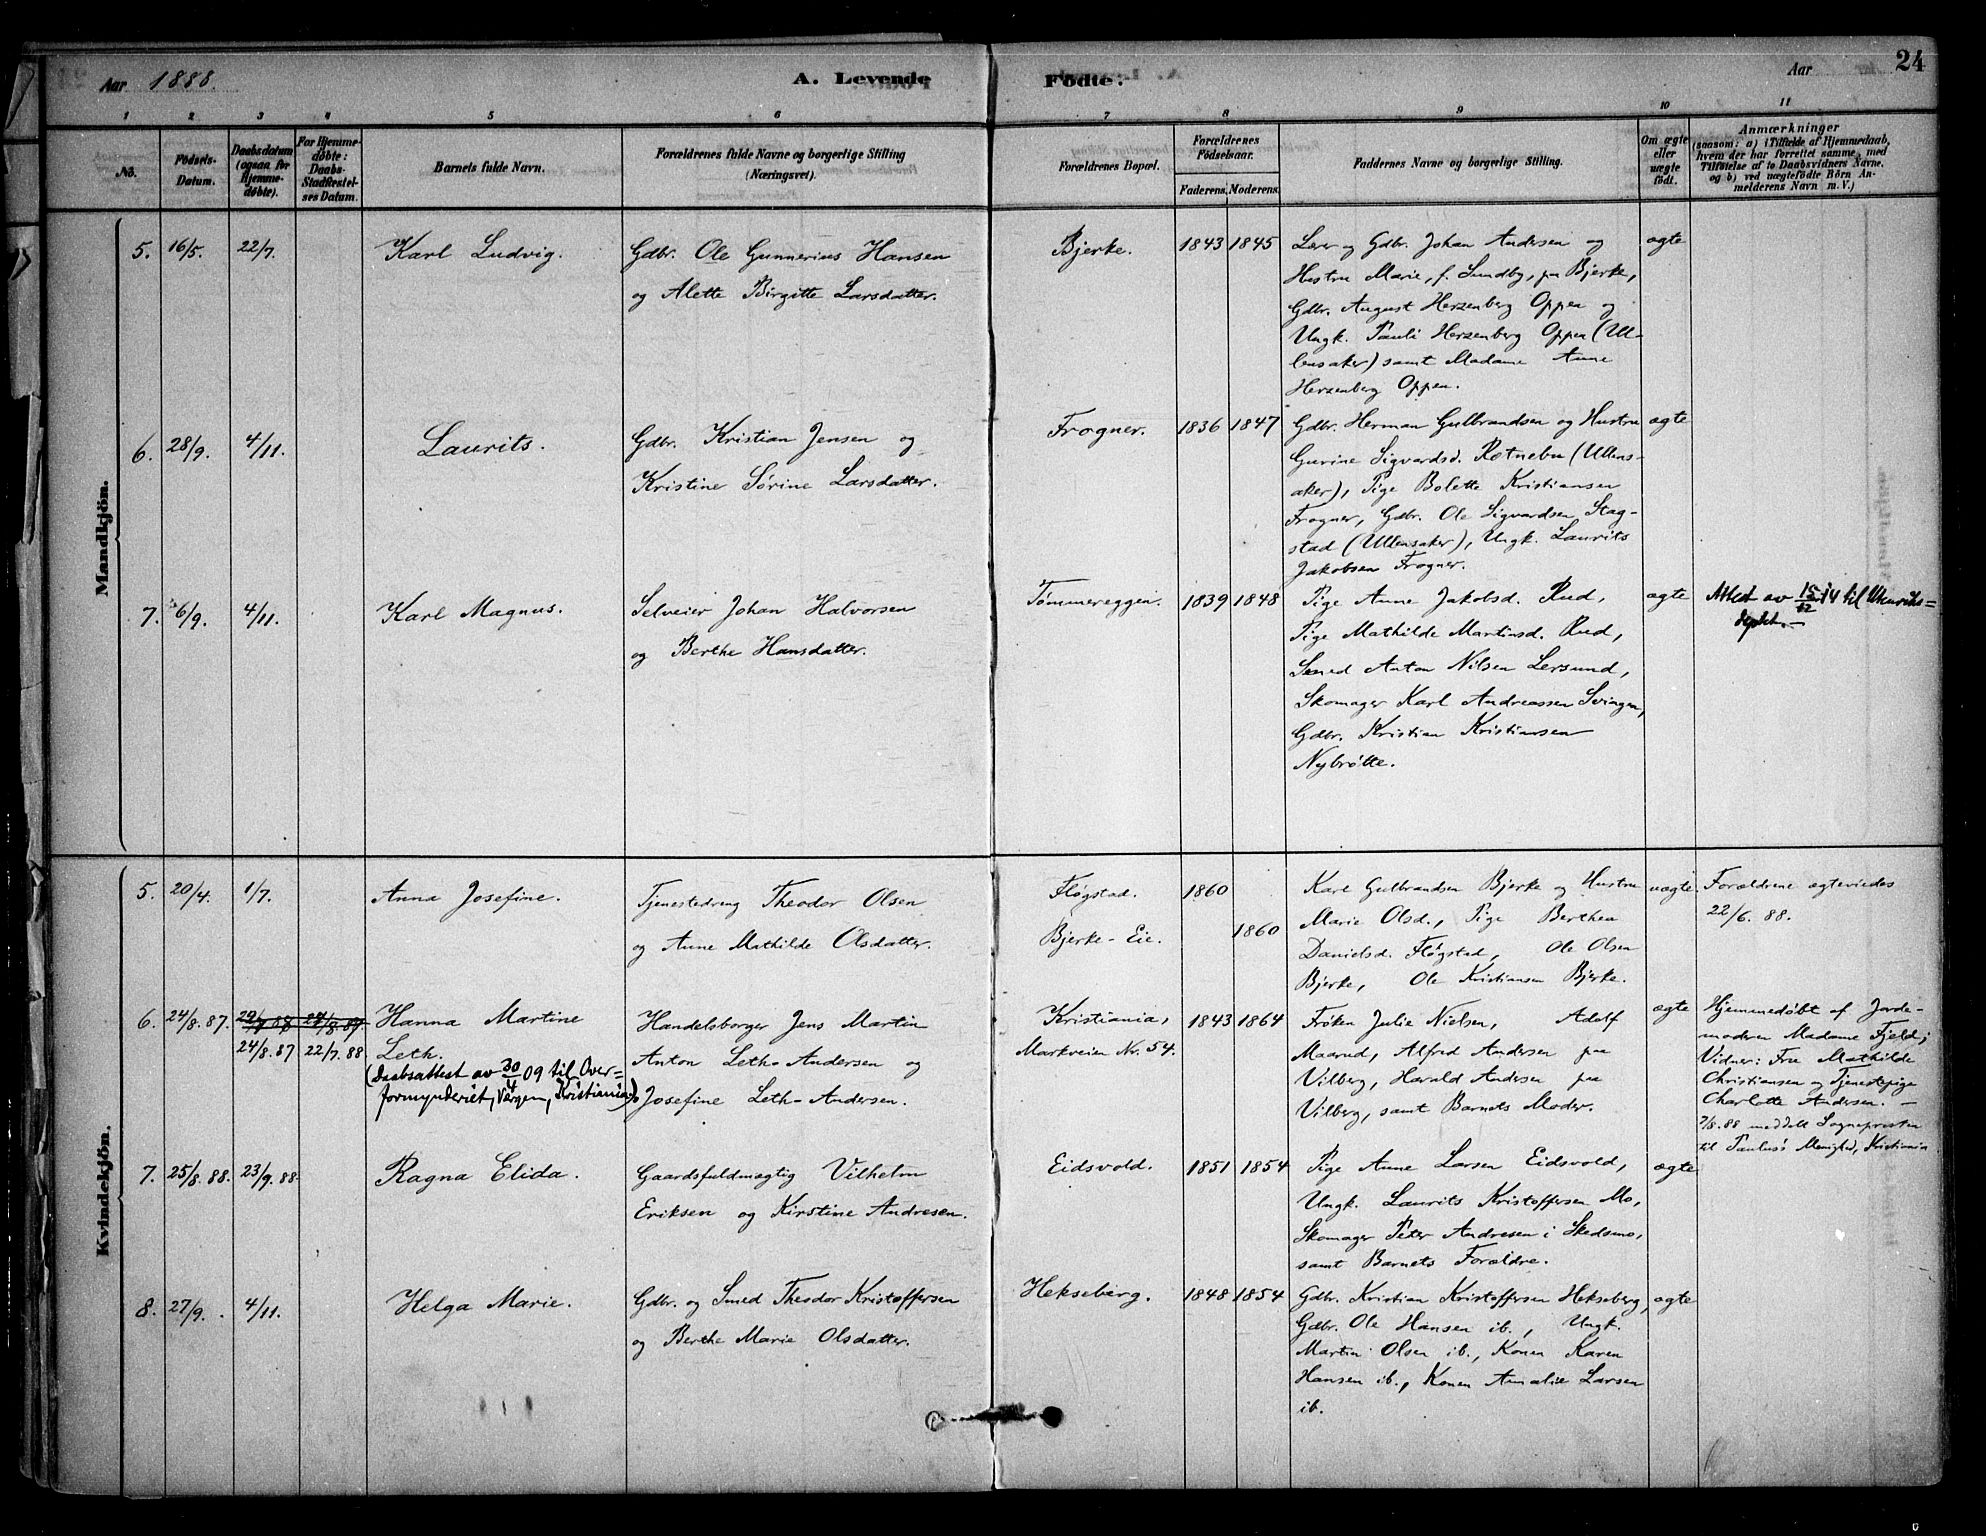 24
Aar 1888.
A. Levende
Födte:
Aar
1 2 3 4 5 6 7 8 9 10 11
No.
Födsels-
Datum.
Daabsdatum
(ogsaa for
Hjemme-
döbte).
For Hjemme-
döbte:
Daabs-
Stadfæstel-
ses Datum.
Barnets fulde Navn.
Forældrenes fulde Navne og borgerlige Stilling
(Næringsvei).
Forældrenes Bopæl.
Forældrenes
Födselsaar.
Faderens. Moderens.
Faddernes Navne og borgerlige Stilling.
Om ægte
eller
uægte
födt.
Anmærkninger
(saasom: a) i Tilfælde af Hjemmedaab,
hvem der har forrettet samme, med
Tilföielse af to Daabsvidners Navne.
og b) ved uægtefödte Börn An-
melderens Navn m. V.)
Mandkjön.
5. 16/5. 22/7. Karl Ludvig.
Gdbr. Ole Gunnerius Hansen
og Alette Birgitte Larsdatter.
Bjerke. 1843 1845
Lærer og Gdbr. Johan Andersen og
Hustru Marie, f. Sundby, paa Bjerke,
Gdbr. August Herzenberg Oppen og
Ungk. Pauli Herzenberg Oppen (Ul-
lensaker) samt Madame Anne
Herzenberg Oppen.
ægte
6. 28/9. 4/11. Laurits.
Gdbr. Kristian Jensen og
Kristine Sørine Larsdatter.
Frogner. 1836 1847
Gdbr. Herman Gulbrandsen og Hustru
Gurine Sigvardsd. Rotnebu (Ullens-
aker), Pige Bolette Kristiansen
Frogner, Gdbr. Ole Sigvardsen Stag-
stad (Ullensaker), Ungk. Laurits
Jakobsen Frogner.
ægte
7. 6/9. 4/11. Karl Magnus.
Selveier Johan Halvorsen
og Berthe Hansdatter.
Tømmereggen. 1839 1848
Pige Anne Jakobsd. Rud,
Pige Mathilde Martinsd. Rud,
Smed Anton Nilsen Lersund,
Skomager Karl Andreassen Svingen,
Gdbr. Kristian Kristiansen
Nybrøtte.
ægte
Attest av 15/12 14 til Utenriks-
deptet.
Kvindekjön.
5. 20/4. 1/7. Anna Josefine.
Tjenestedreng Theodor Olsen
og Anne Mathilde Olsdatter.
Fløgstad. 1860
Bjerke-Eie. 1860
Karl Gulbrandsen Bjerke og Hustru
Marie Olsd., Pige Berthea
Danielsd. Fløgstad, Ole Olsen
Bjerke, Ole Kristiansen Bjerke.
uægte.
Forældrene ægteviedes
22/6. 88.
6. 24/8. 87.
24/8. 87 22/7. 88
Hanna Martine
Leth.
(Daabsattest av 30/4 09 til Over-
formynderiet, Vergen, Kristiania)
Handelsborger Jens Martin
Anton Leth-Andersen og
Josefine Leth-Andersen.
Kristiania,
Markveien Nr. 54.
1843 1864
Frøken Julie Nielsen, Adolf
Maarud, Alfred Andersen paa
Vilberg, Harald Andersen paa
Vilberg, samt Barnets Moder.
ægte
Hjemmedøbt af Jorde-
moderen Madame Fjeld;
Vidner: Fru Mathilde
Christiansen og Tjenestepige
Charlotte Andersen. —
7/8. 88 meddelt Sognepresten
til Paulus's Menighed, Kristiania.
7. 25/8. 88. 23/9. 88. Ragna Elida.
Gaardsfuldmægtig Vilhelm
Eriksen og Kirstine Andresen.
Eidsvold. 1851 1854
Pige Anne Larsen Eidsvold,
Ungk. Laurits Kristoffersen Mo,
Skomager Peter Andresen i Skedsmo,
samt Barnets Forældre.
ægte
8. 27/9. 4/11. Helga Marie.
Gdbr. og Smed Theodor Kristoffersen
og Berthe Marie Olsdatter.
Hekseberg. 1848 1854
Gdbr. Kristian Kristoffersen Hekseberg,
Gdbr. Ole Hansen ib., Ungk.
Martin Olsen ib., Konen Karen
Hansen ib., Konen Amalie Larsen
ib.
ægte